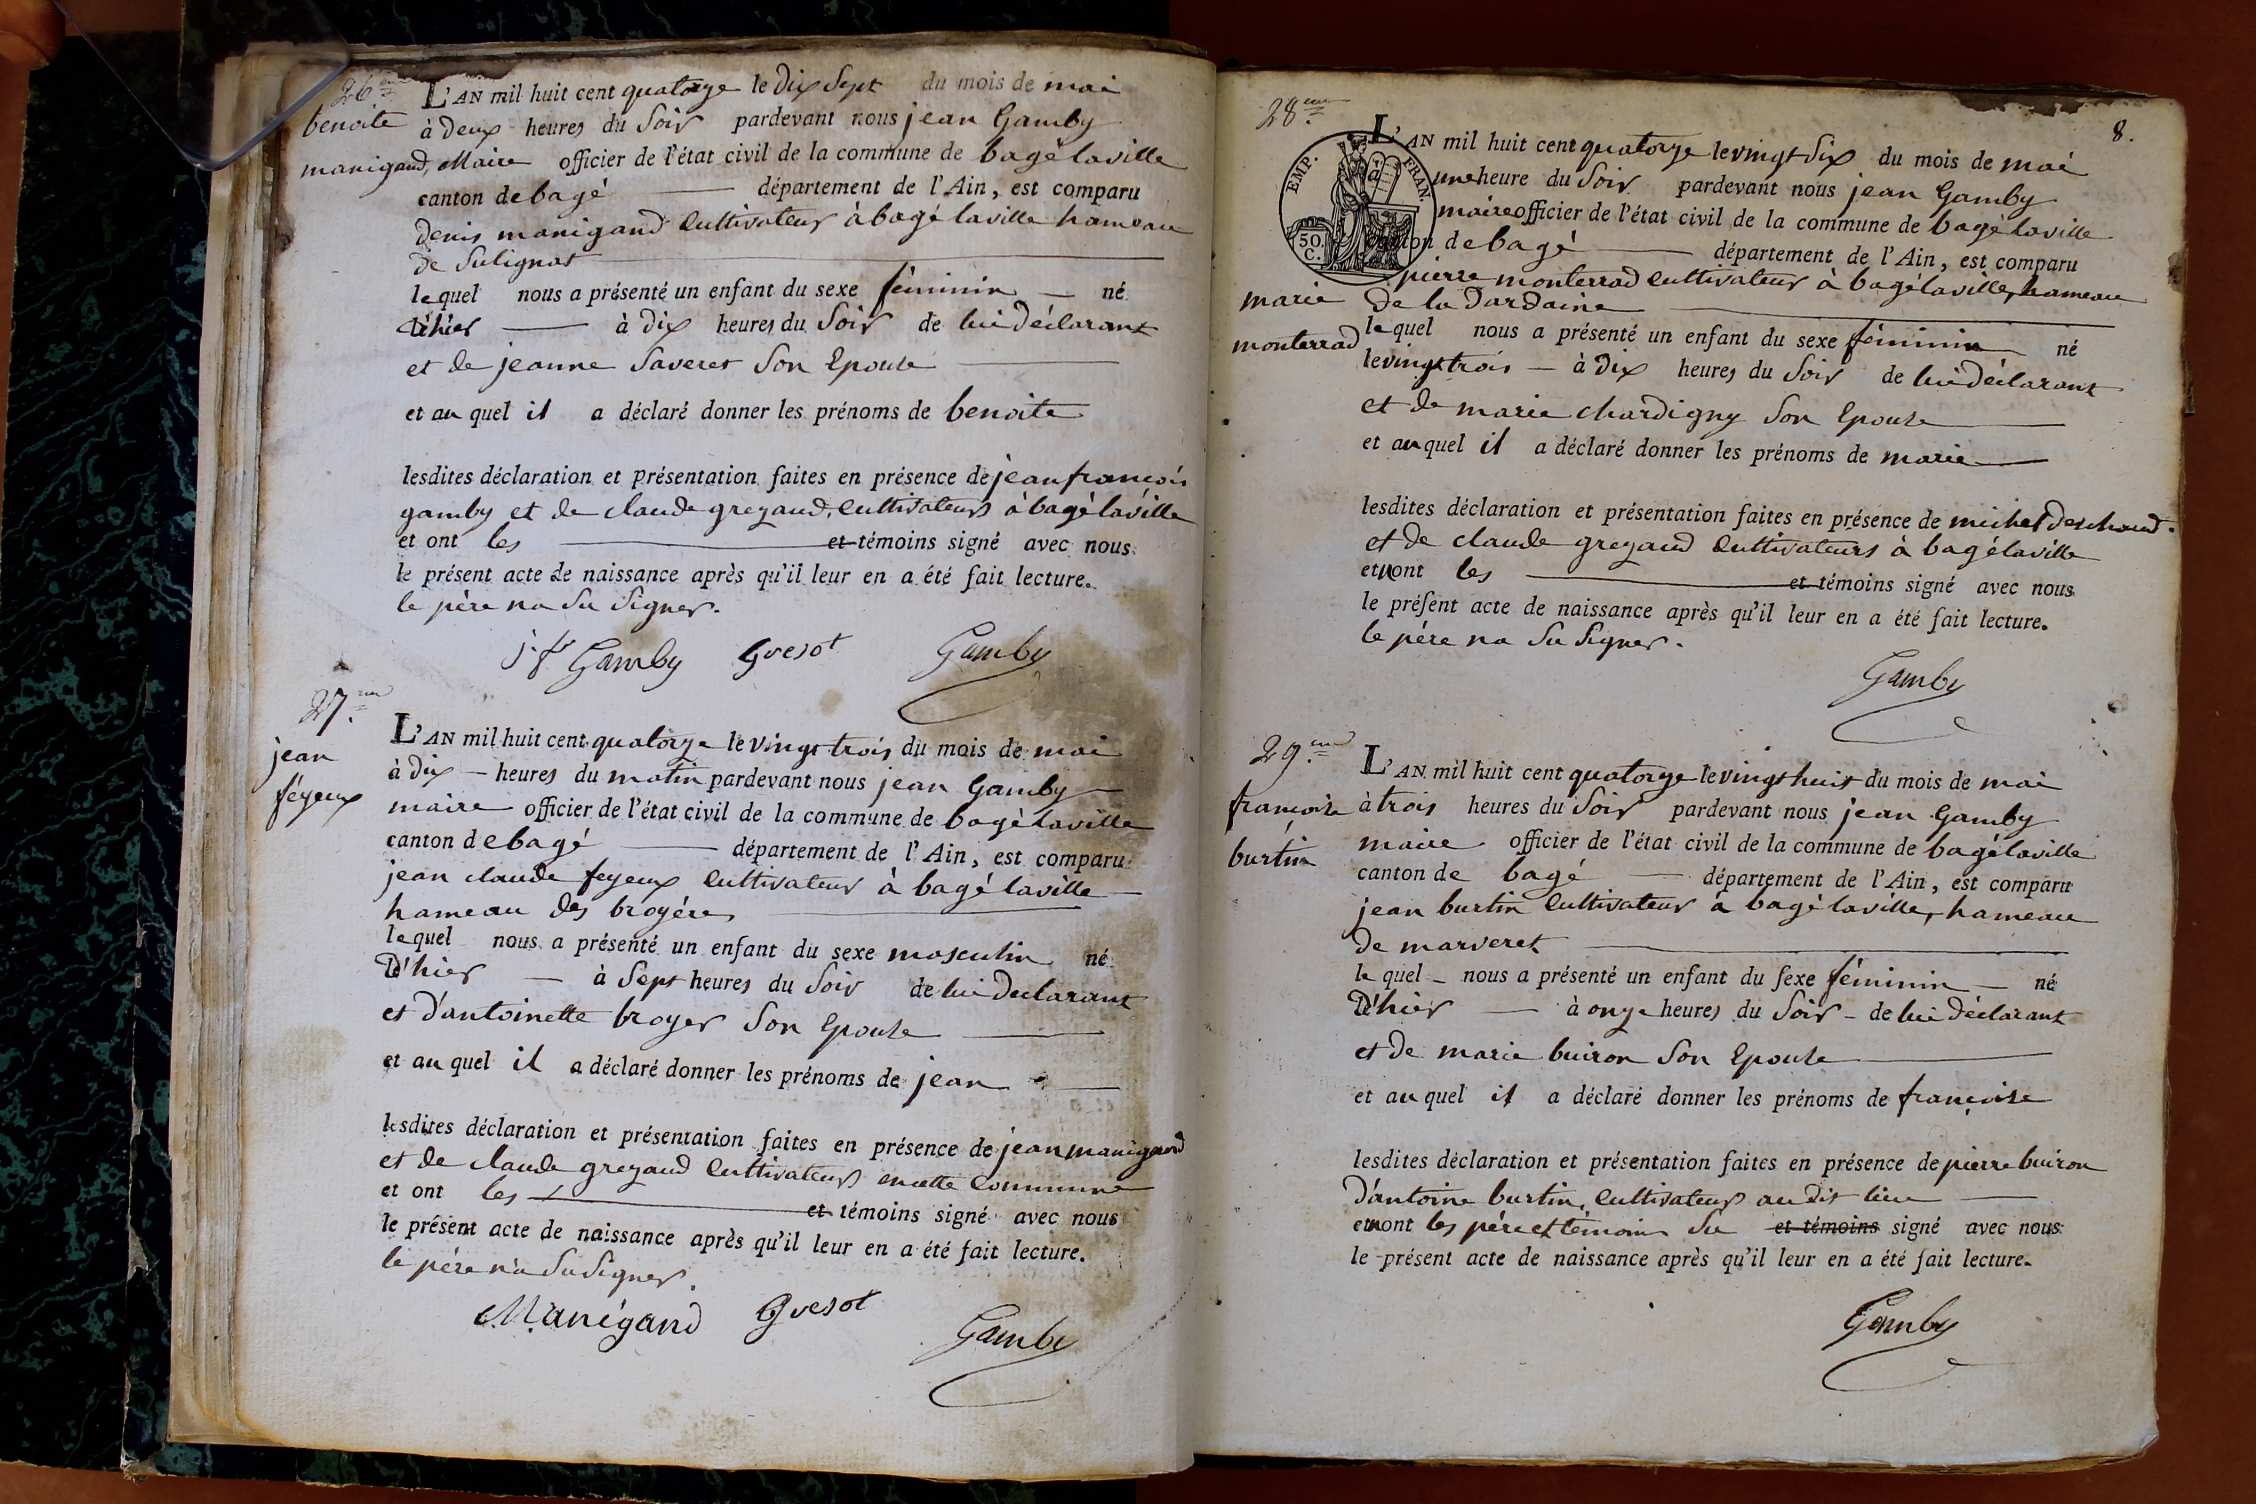 26eme
benoite
manigand
L'AN mil huit cent quatorze le dix sept du mois de mai
à deux heures du soir pardevant nous jean Gamby
Maire officier de l'état civil de la commune de bagé laville
canton de bagé département de l'Ain, est comparu
denis manigand cultivateur à bagé laville hameau
de Sulignat
lequel nous a présenté un enfant du sexe féminin né
d'hier à dix heures du soir de lui déclarant
et de jeanne Saveret son Epouse
et au quel il a déclaré donner les prénoms de benoite
lesdites déclaration et présentation faites en présence de jean françois
gamby et de claude grezaud, cultivateurs à bagé laville
et ont les et témoins signé avec nous
le présent acte de naissance après qu'il leur en a été fait lecture.
le père na su signer.
j. fs Gamby Gresot Gamby
27eme
jean
feyeux
L'AN mil huit cent quatorze le vingt trois du mois de mai
à dix heures du matin pardevant nous jean Gamby
maire officier de l'état civil de la commune de bagé laville
canton de bagé département de l'Ain, est comparu
jean claude feyeux cultivateur à bagé laville
hameau des broyéres
lequel nous a présenté un enfant du sexe masculin né
d'hier à sept heures du soir de lui declarant
et d'antoinette broyer son Epouse
et au quel il a déclaré donner les prénoms de jean
lesdites déclaration et présentation faites en présence de jean manigand
et de claude grezaud cultivateurs en cette commune
et ont les et témoins signé avec nous
le présent acte de naissance après qu'il leur en a été fait lecture.
le père n'a su signer.
Manigand Gresot
Gamby
8.
28eme
marie
monterrad
EMP. FRAN.
50.
C.
L'AN mil huit cent quatorze le vingt six du mois de mai
une heure du soir pardevant nous jean Gamby
maire officier de l'état civil de la commune de bagé laville
canton de bagé département de l'Ain, est comparu
pierre monterrad cultivateur à bagé laville, hameau
de la dardaine
le quel nous a présenté un enfant du sexe féminin né
le vingt trois à dix heures du soir de lui déclarant
et de marie chardigny son Epouse
et au quel il a déclaré donner les prénoms de marie
lesdites déclaration et présentation faites en présence de michel deschaud
et de claude grezaud cultivateurs à bagé laville
et n'ont les et témoins signé avec nous
le présent acte de naissance après qu'il leur en a été fait lecture.
le père na su signer.
Gamby
29eme
françoise
burtin
L'AN mil huit cent quatorze le vingt huit du mois de mai
à trois heures du soir pardevant nous jean Gamby
maire officier de l'état civil de la commune de bagé laville
canton de bagé département de l'Ain, est comparu
jean burtin cultivateur à bagé laville, hameau
de marveret
le quel nous a présenté un enfant du sexe féminin né
d'hier à onze heures du soir de lui déclarant
et de marie buiron son Epouse
et au quel il a déclaré donner les prénoms de françoise
lesdites déclaration et présentation faites en présence de pierre buiron
d'antoine burtin, cultivateurs au dit lieu
et n'ont les père et témoins su et témoins signé avec nous
le présent acte de naissance après qu'il leur en a été fait lecture.
Gamby